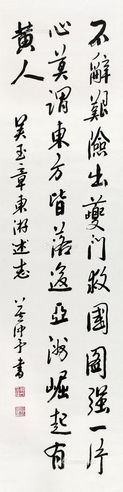 不辭艱險出夔門救國圖強一片
心莫謂東方皆落後亞洲崛起有
黃人
吳玉章東游述志
書